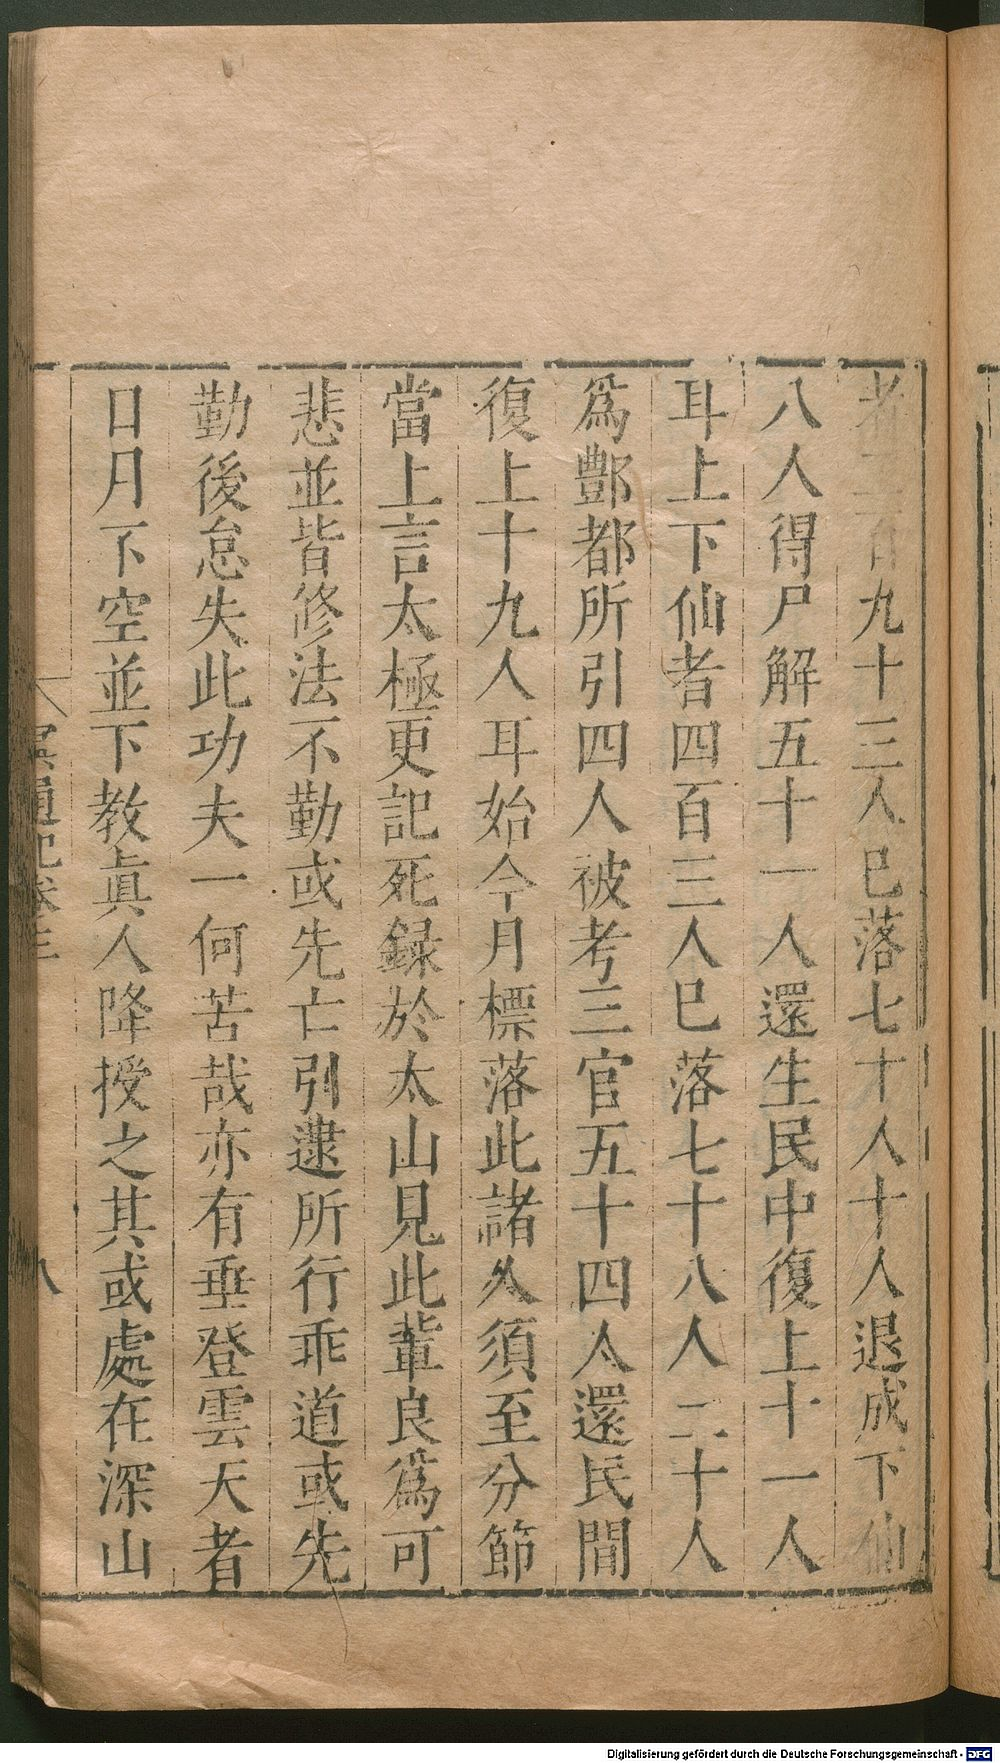 者二百九十三人巳落七十人十人退成下仙
八人得尸解五十一人還生民中復上十一人
耳上下仙者四百三人巳落七十八人二十人
爲酆都所引四人被考三官五十四人還民間
復上十九人耳始今月標落此諸人須至分節
當上言太極更記死録於太山見此輩良爲可
悲並皆修法不勤或先亡引逮所行乖道或先
勤後怠失此功夫一何苦哉亦有垂登雲天者
日月不空並下教眞人降授之其或處在深山
冥通記卷三
八
Digitalisierung gefördert durch die Deutsche Forschungsgemeinschaft - DFG